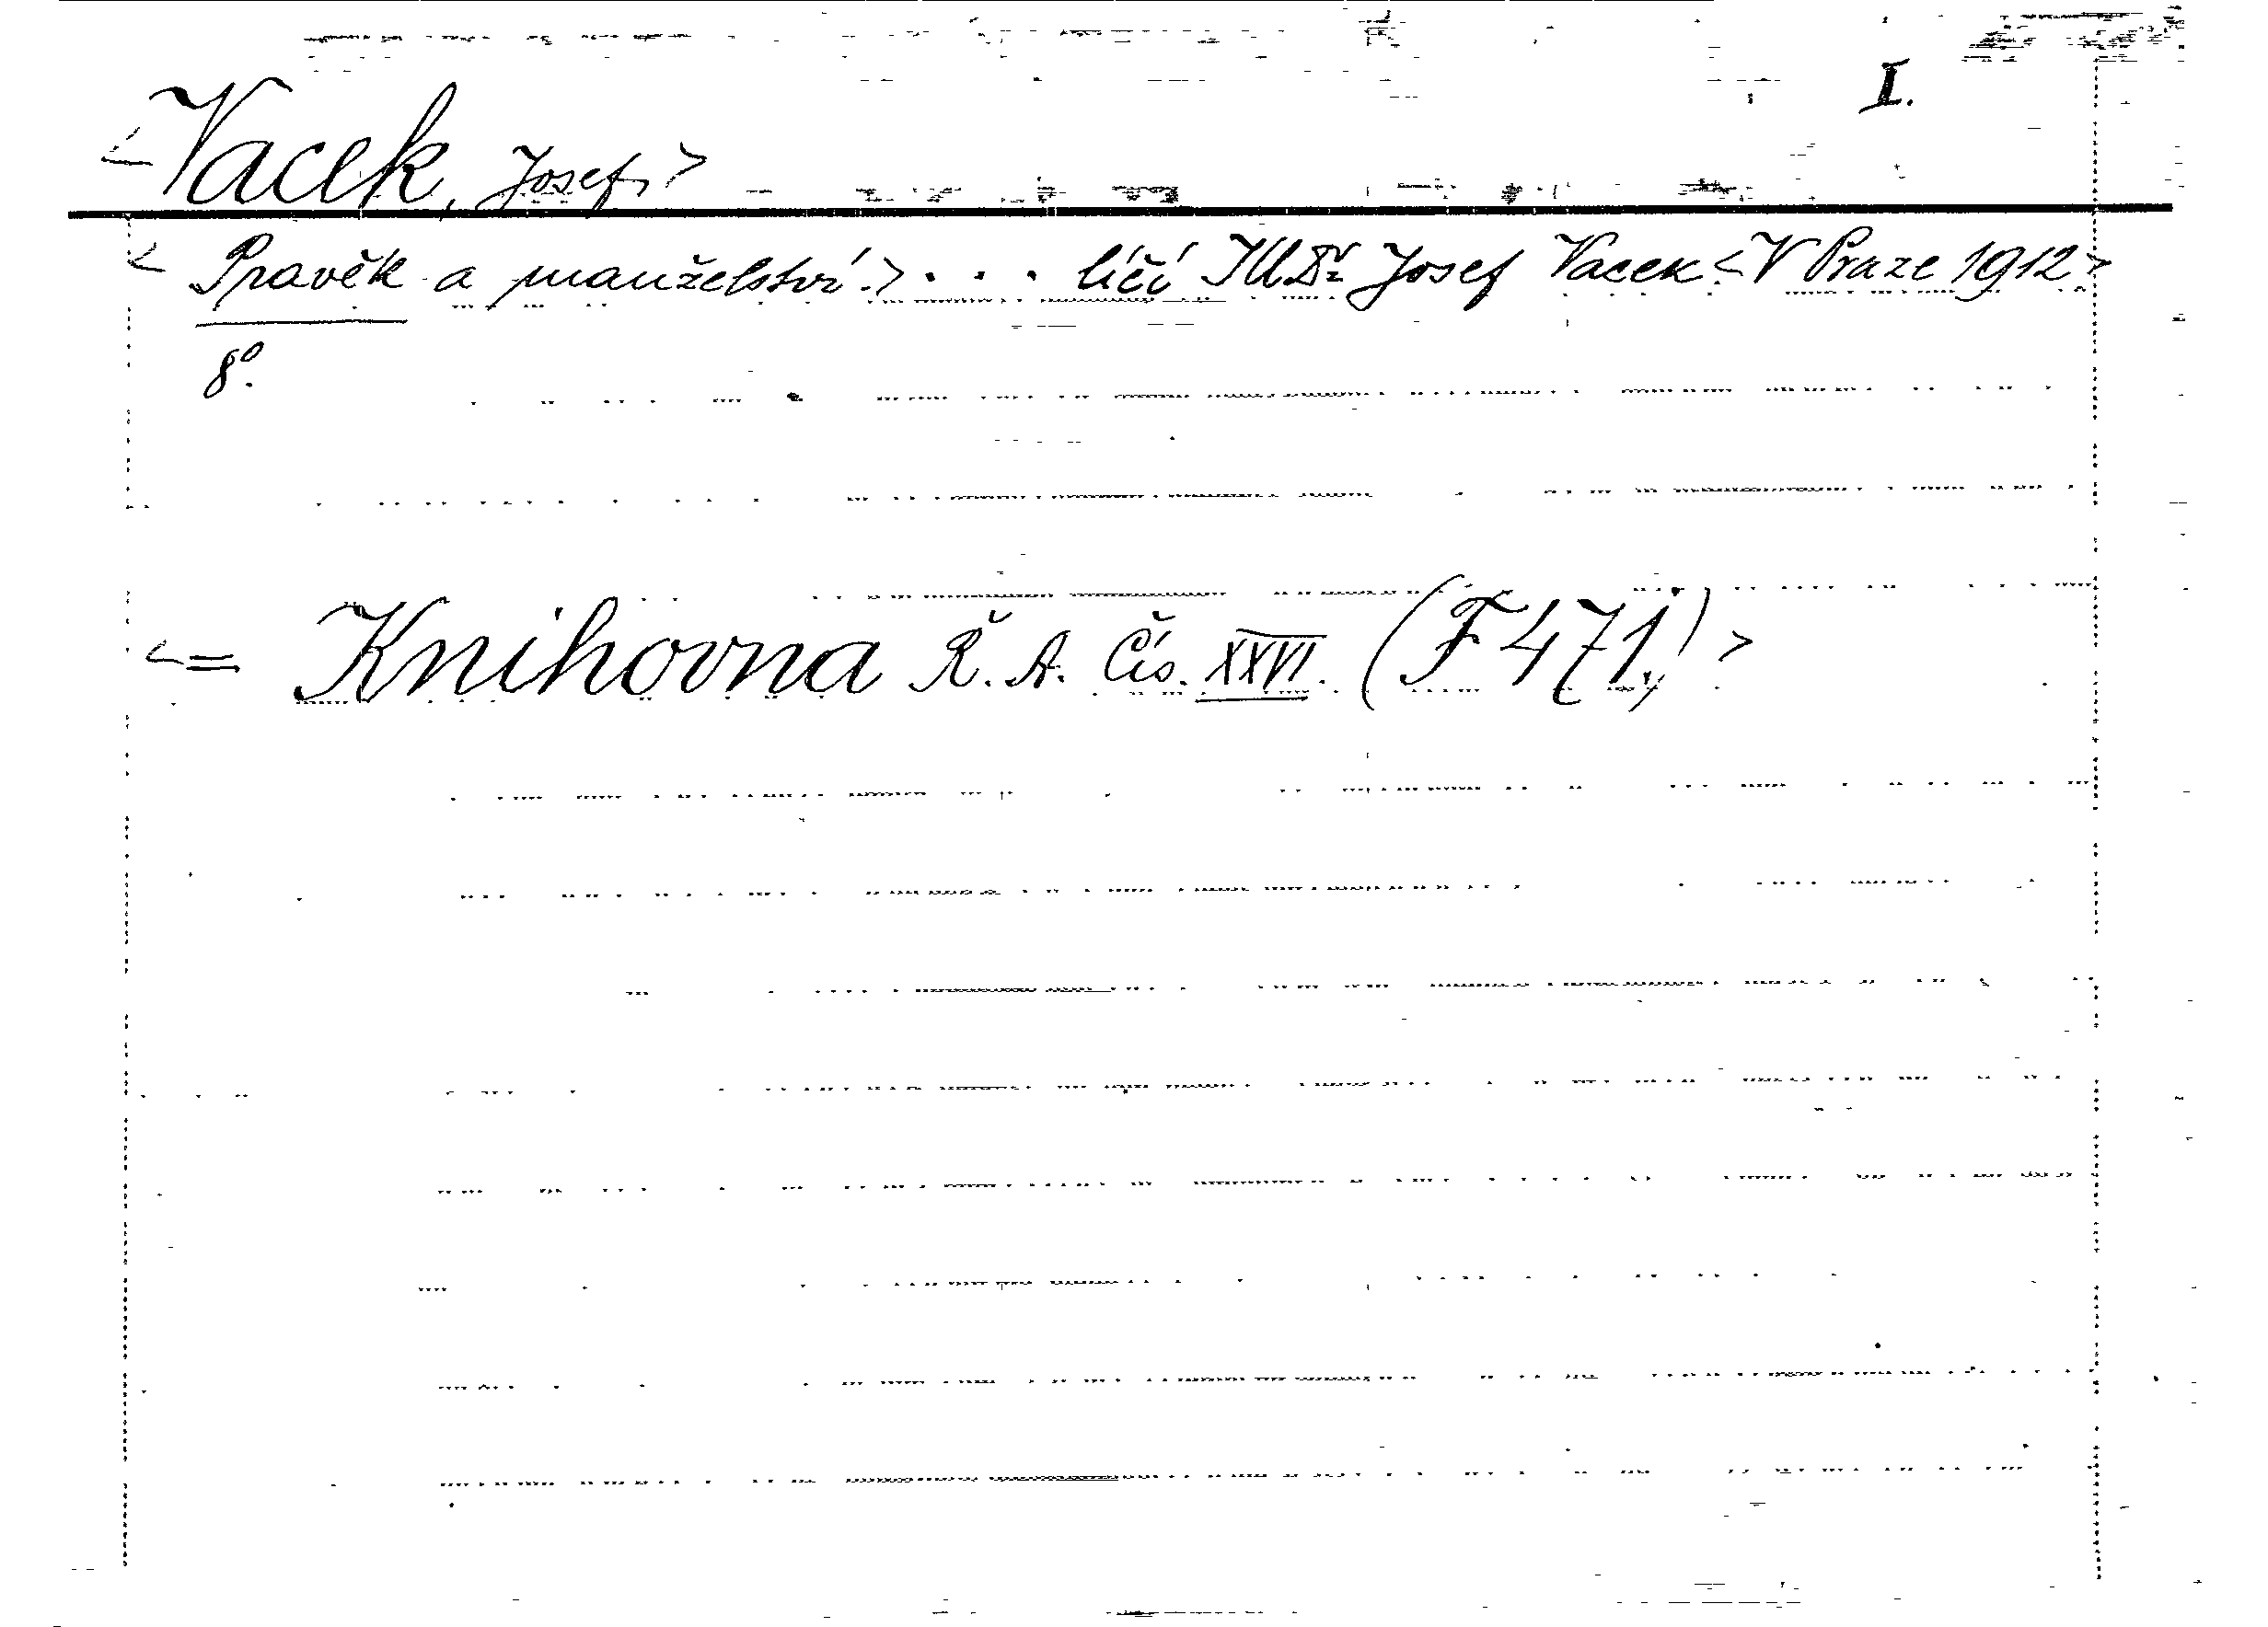 I.
<Vacek, Josef,>
< Pravěk a manželství.> . . . líčí JUDr. Josef Vacek.<V Praze 1912>
8°.
<= Knihovna Ř. A. Čís. XXVI. (F 471.)>